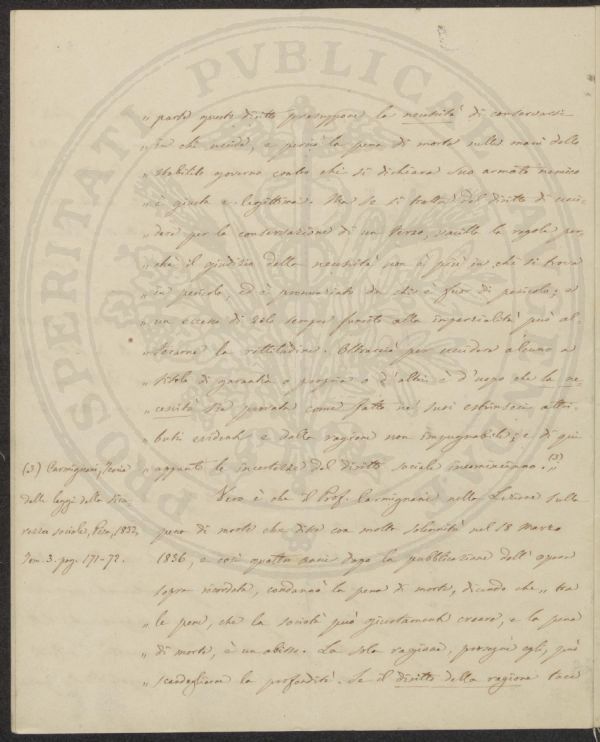 „ parte questo diritto presuppone la necessità di conservarsi
„ in chi uccide, e perciò la pena di morte nelle mani dello
„ stabilito governo contro chi si dichiara suo armato nemico
„ è giusta e legittima. Ma se si tratta del diritto di ucci-
„ dere per la conservazione di un terzo, vacilla la regola per-
„ chè il giudizio della necessità non è più in chi si trova
„ in pericolo, ed è pronunziato da chi è fuor di pericolo; e
„ un eccesso di zelo sempre funesto alla imparzialità può al-
„ terarne la rettitudine. Oltracciò per uccidere alcuno a
„ titolo di garantia o propria o d'altri è d'uopo che la ne
„ cessità sia provata come fatto ne' suoi estrinseci attri-
„ buti evidenti e dalla ragione non impugnabili; e di quì
„ appunto le incertezze del diritto sociale incominciano. (3)
(3) Carmignani, Teoria
delle leggi della sicu-
rezza sociale, Pisa, 1832,
Tom. 3. pag. 171-72.
Vero è che il Prof. Carmignani nella Lezione sulla
pena di morte che disse con molta solennità nel 18 Marzo
1836, e così quattro anni dopo la pubblicazione dell' opera
sopra ricordata, condannò la pena di morte, dicendo che „ tra
„ le pene, che la società può giustamente creare, e la pena
„ di morte, è un abisso. La sola ragione, prosegue egli, può
„ scandagliarne la profondità. Se il diritto della ragione tace
PROSPERITATI PVBLICAE